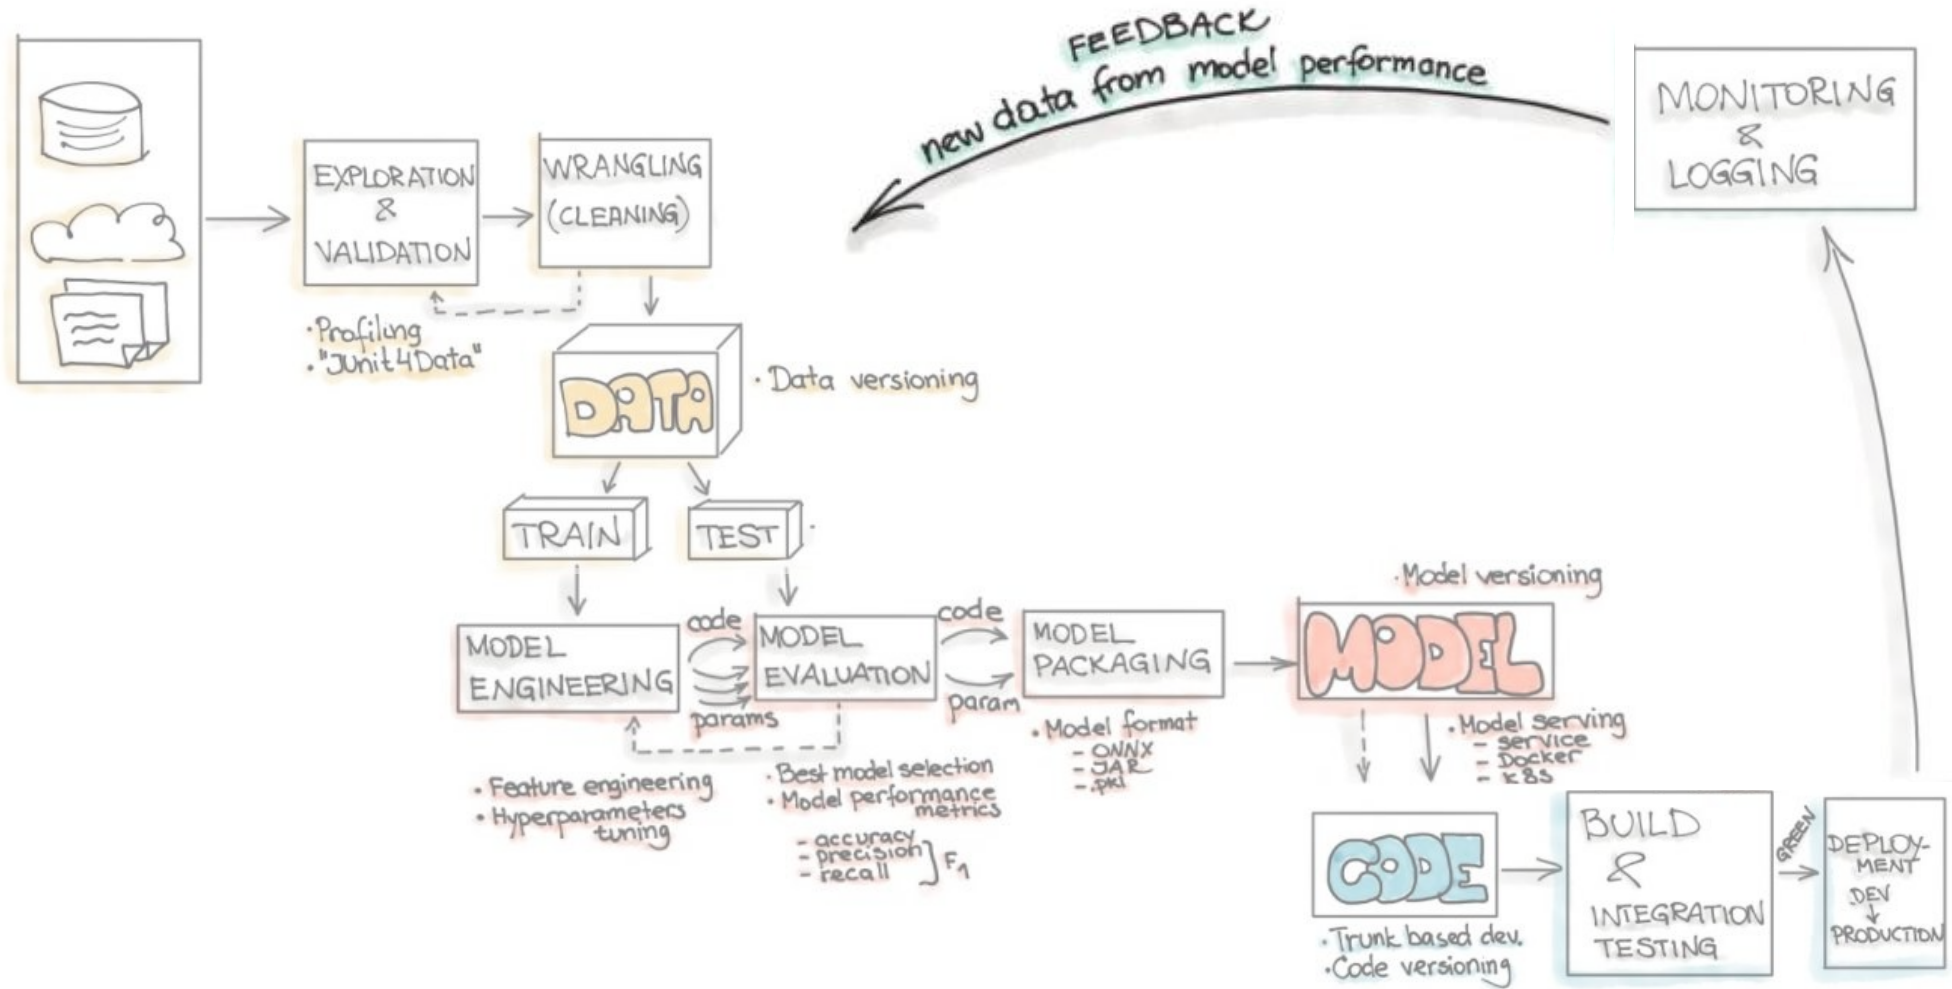 FEEDBACK
new data from model performance
MONITORING
&
LOGGING
EXPLORATION
&
VALIDATION
WRANGLING
(CLEANING)
• Profiling
• "JUnit4Data"
DATA
• Data versioning
TRAIN
TEST
MODEL
ENGINEERING
code
params
MODEL
EVALUATION
code
param
MODEL
PACKAGING
• Model versioning
MODEL
• Feature engineering
• Hyperparameters
tuning
• Best model selection
• Model performance
metrics
- accuracy
- precision
- recall
F1
• Model format
- ONNX
- JAR
- .pkl
• Model serving
- service
- Docker
- K8S
CODE
• Trunk based dev.
• Code versioning
BUILD
&
INTEGRATION
TESTING
GREEN
DEPLOY-
MENT
DEV
PRODUCTION